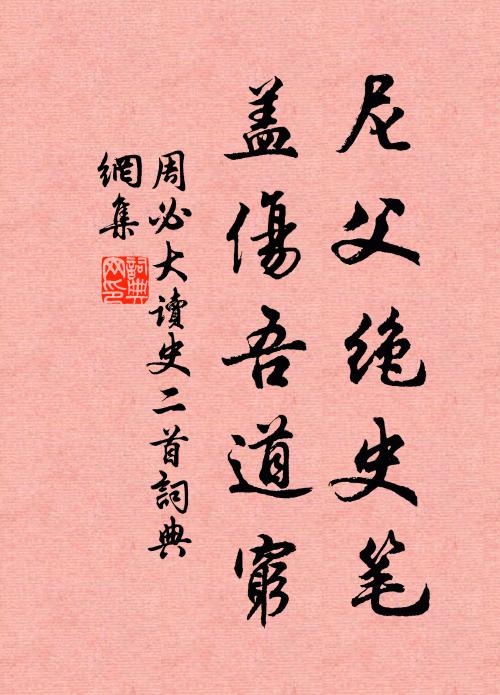 尼父绝史笔
盖傷吾道窮
周必大读史二首詞典
網集
詞典
网印